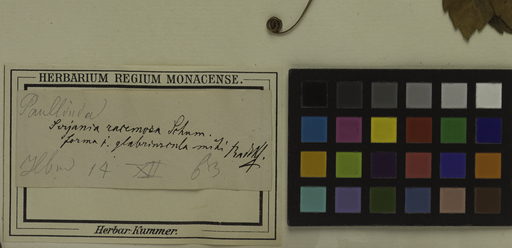 HERBARIUM REGIUM MONACENSE.
Paullinia
Serjania racemosa Schum.
forma 1. glabriuscula mihi Radlkf.
14 XII 63
Herbar. Kummer.